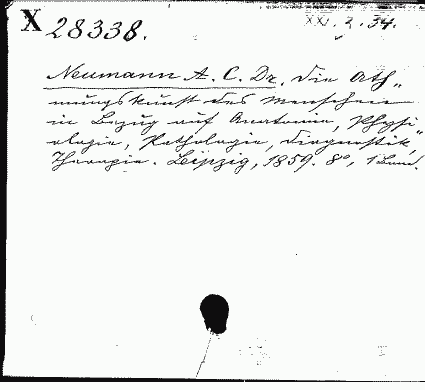 X 28338. XXI. 2. 34.
Neumann A. C. Dr. Die Ath„
mungskunst des Menschen
in Bezug auf Anatomie, Physi„
ologie, Pathologie, Diagnostik,
Therapie. Leipzig, 1859. 8°, 1 Band.